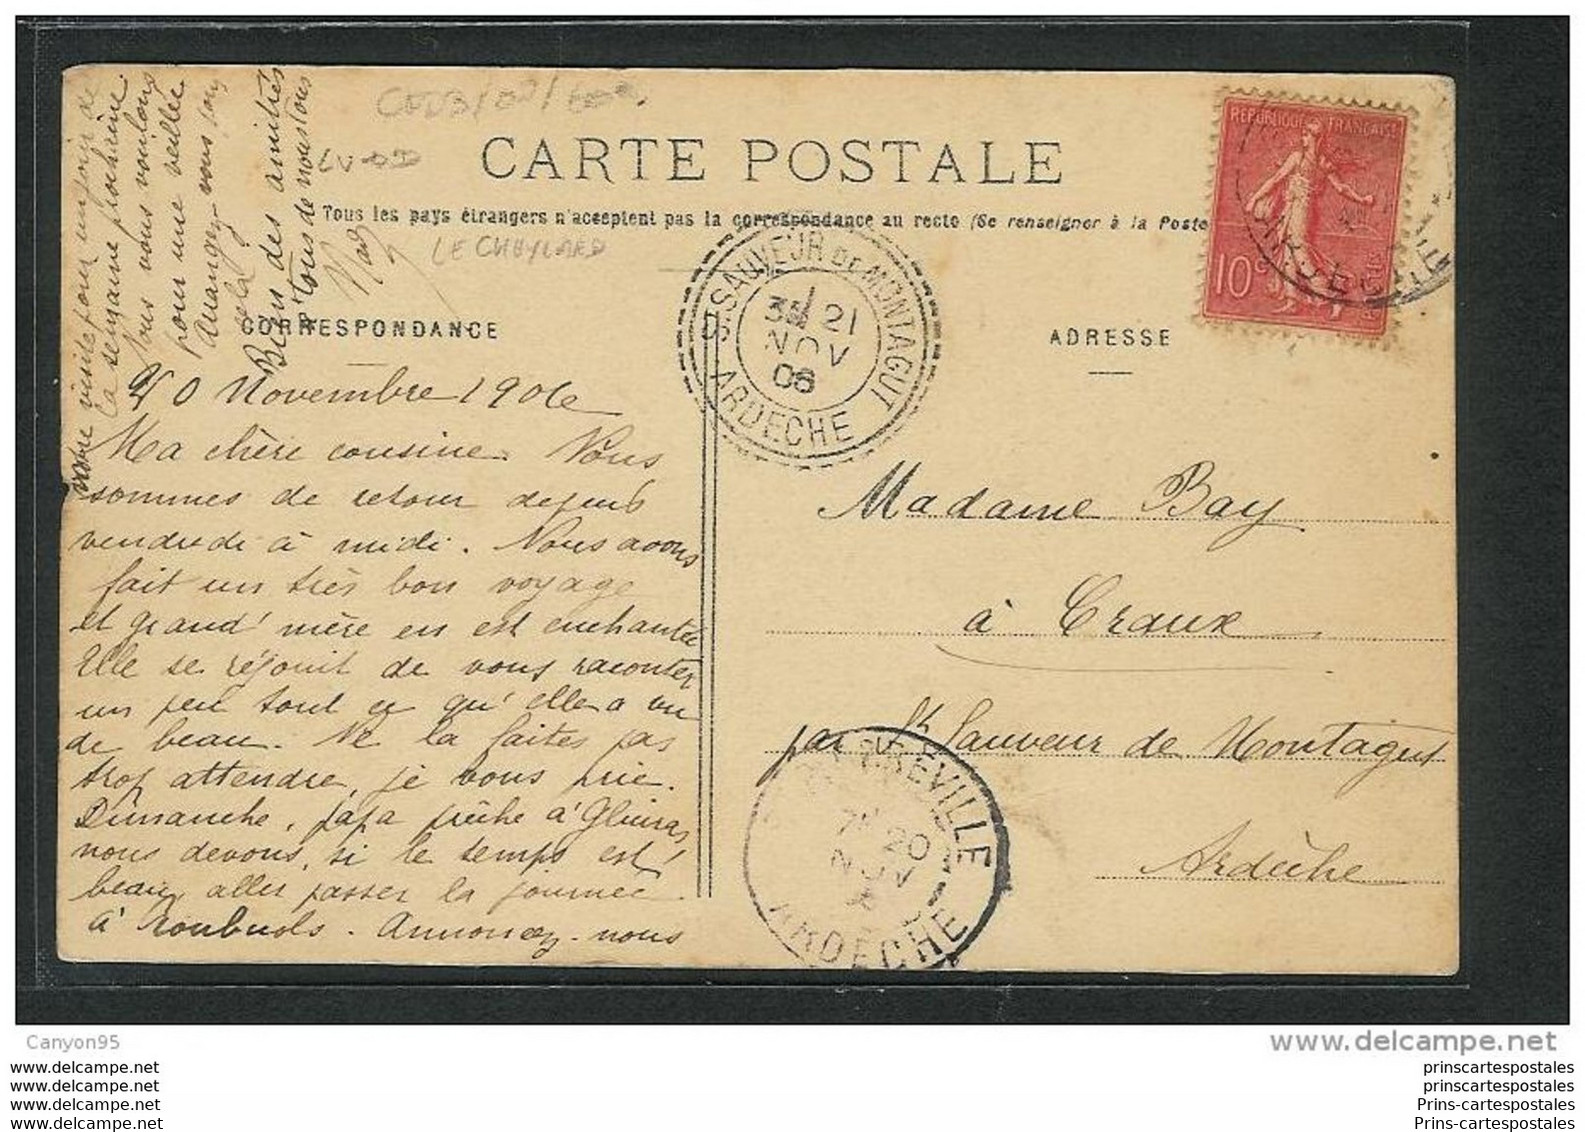 CARTE POSTALE
Tous les pays étrangers n'acceptent pas la correspondance au recto (Se renseigner à la Poste
LE CHEYLARD
CORRESPONDANCE
ADRESSE
RÉPUBLIQUE FRANÇAISE
10 c
POSTES
ST SAUVEUR DE MONTAGUT
21
NOV
06
ARDECHE
20 Novembre 1906
Ma chère cousine. Nous
sommes de retour depuis
vendredi à midi. Nous avons
fait un très bon voyage
et grand' mère en est enchantée
Elle se réjouit de vous raconter
un peu tout ce qu'elle a vu
de beau. Ne la faites pas
trop attendre, je vous prie.
Dimanche, papa prêche à Gluiras
nous devons, si le temps est
beau, aller passer la journée
à . Annoncez-nous
votre visite pour un jour de
la semaine prochaine.
Nous vous voulons
pour une veillée
Arrangez-vous pour
cela
Bien des amitiés
à tous de nous tous
Madame Bay
à Craux
par St Sauveur de Montagut
Ardèche
20
NOV
ARDECHE
Canyon95
delcampe.net
www.delcampe.net
www.delcampe.net
www.delcampe.net
www.delcampe.net
prinscartespostales
prinscartespostales
Prins-cartespostales
Prins-cartespostales